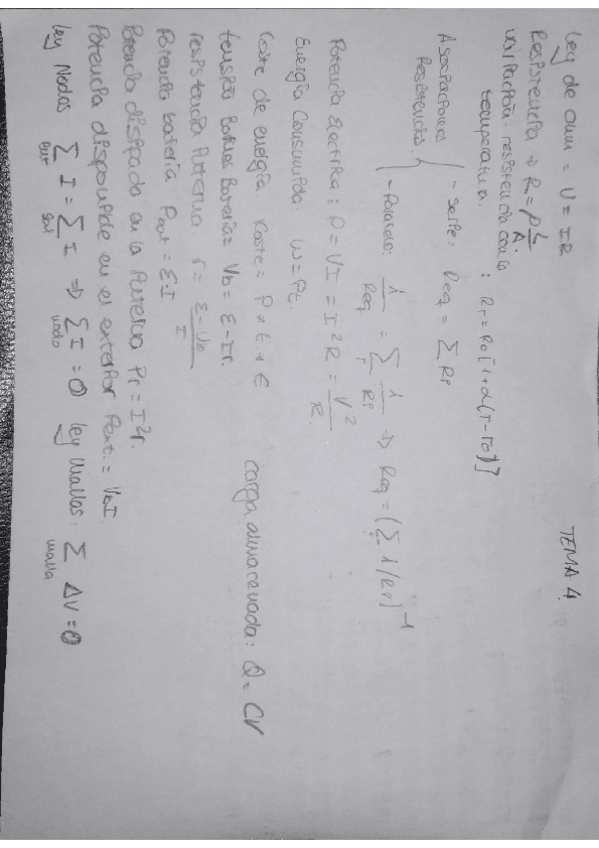 TEMA 4
Ley de Ohm = V = IR
Resistencia → R = ρ L/A.
Variación resistencia con la
temperatura. : RT = R0 [1 + α(T - T0)]
Asociaciones
Resistencias
- Serie: Req = ∑ Ri
- Paralelo: 1/Req = ∑ 1/Ri ⇒ Req = (∑ 1/Ri)⁻¹
Potencia eléctrica: P = VI = I²R = V²/R.
Energía consumida: W = Pt.
Coste de energía Koste = P * t * €
carga almacenada: Q = CV
tensión Bornes Batería = Vb = ε - Ir.
resistencia interna r = (ε - Vb)/I
Potencia batería Pbat = ε·I
Potencia disipada en la interna Pr = I²r.
Potencia disponible en el exterior Pext. = VbI
Ley Nodos ∑ent I = ∑sal I ⇒ ∑nodo I = 0 Ley Mallas: ∑malla ΔV = 0